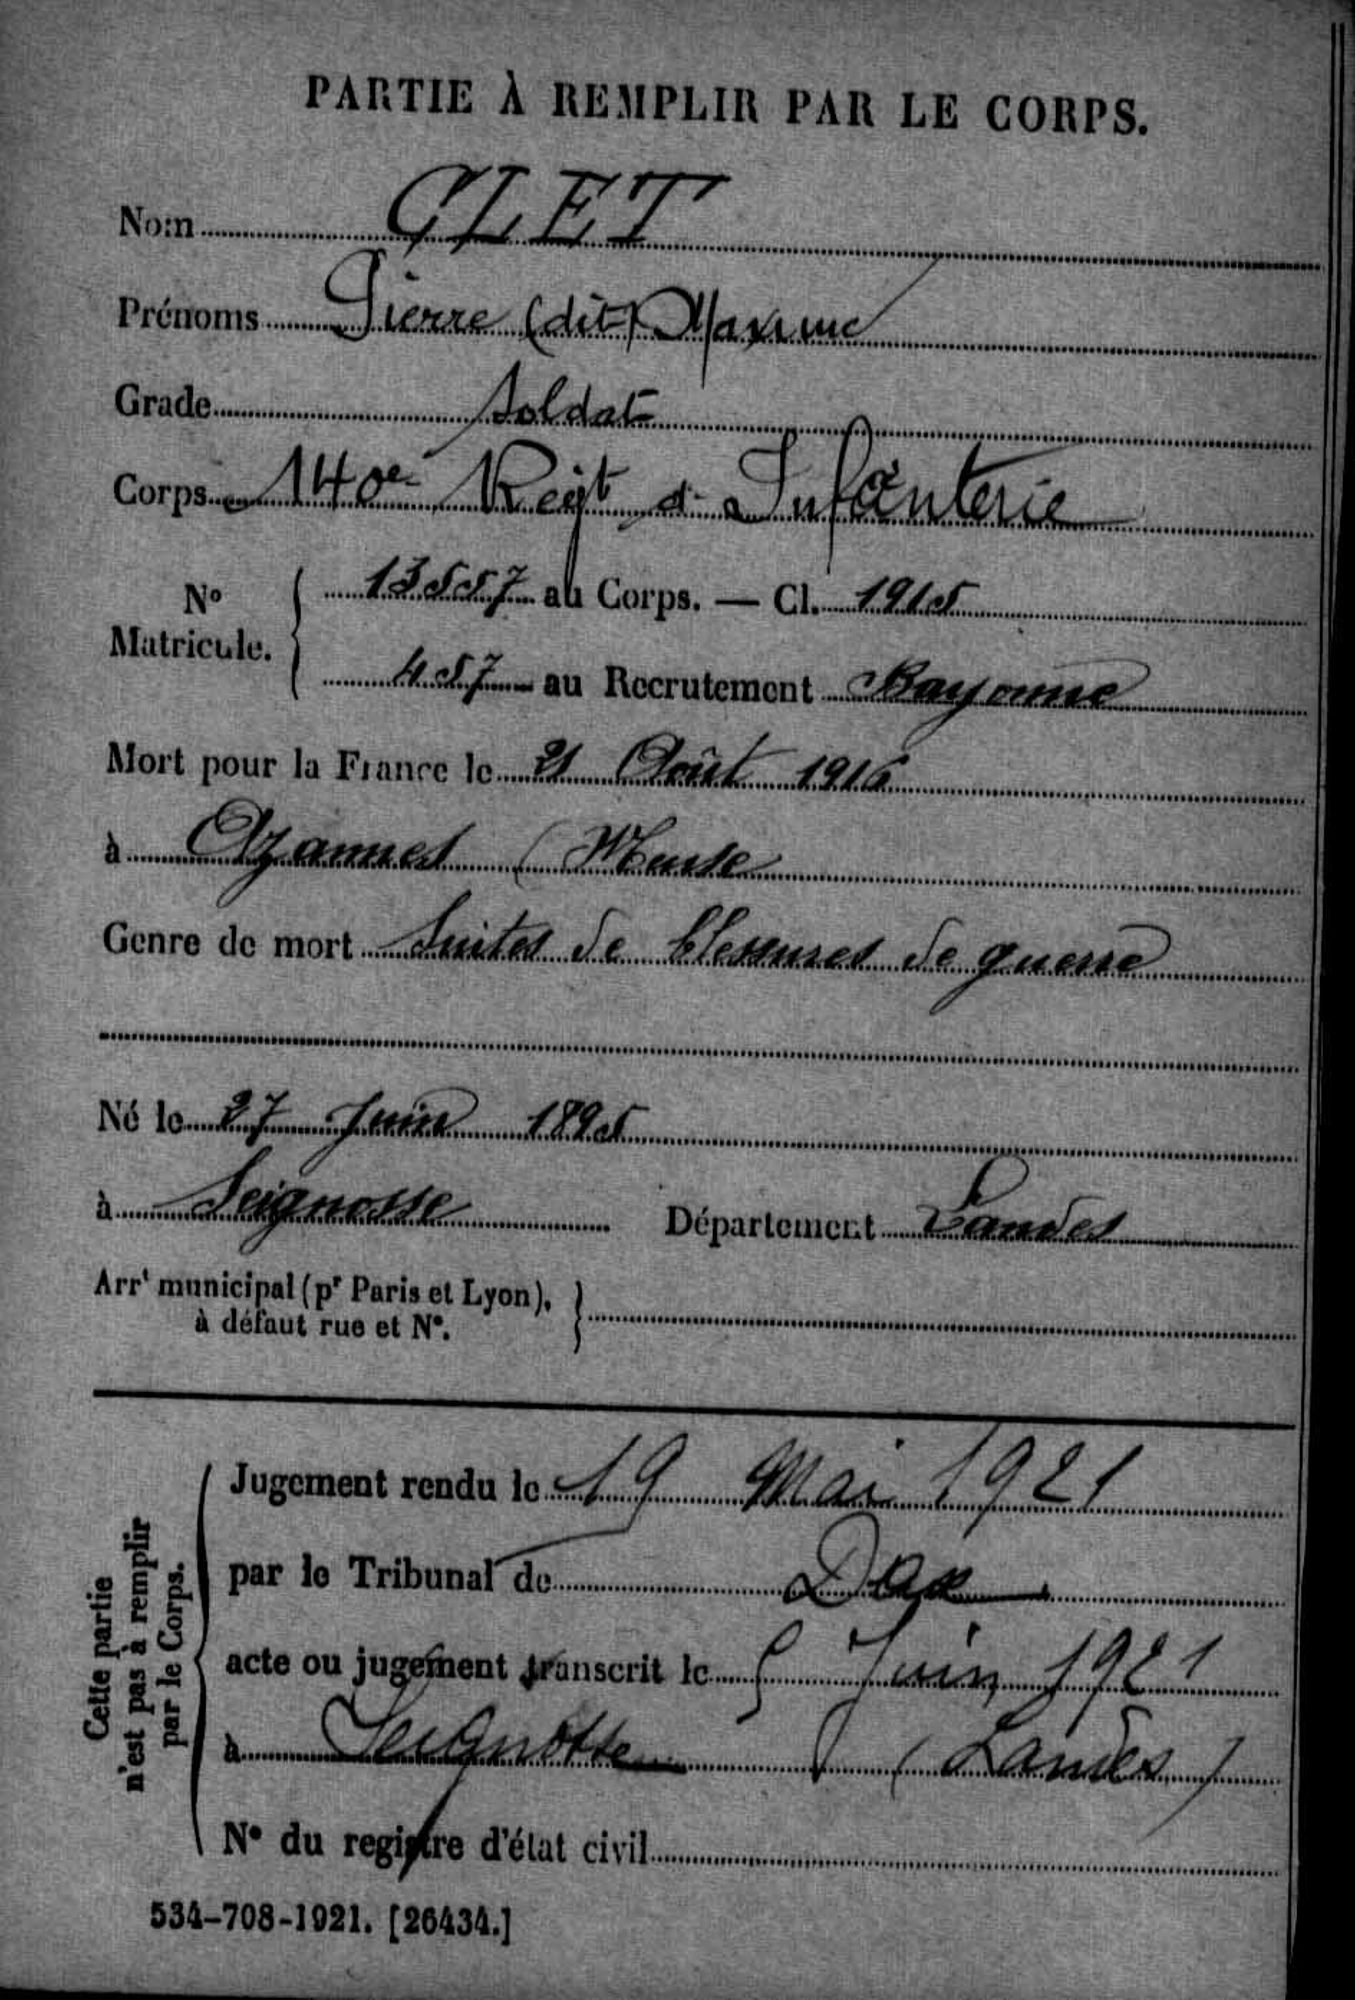 PARTIE À REMPLIR PAR LE CORPS.
Nom CLET
Prénoms Pierre (dit) Maxime
Grade Soldat
Corps 140e Regt d'Infanterie
N° Matricule. { 13557 au Corps. — Cl. 1915
457 au Recrutement Bayonne
Mort pour la France le 21 Août 1916
à Azannes (Meuse
Genre de mort Suites de blessures de guerre
Né le 27 Juin 1895
à Seignosse Département Landes
Arrt municipal (pr Paris et Lyon), }
à défaut rue et N°.
Cette partie
n'est pas à remplir
par le Corps.
Jugement rendu le 19 Mai 1921
par le Tribunal de Dax
acte ou jugement transcrit le 5 Juin 1921
à Seignosse (Landes)
N° du registre d'état civil
534-708-1921. [26434.]